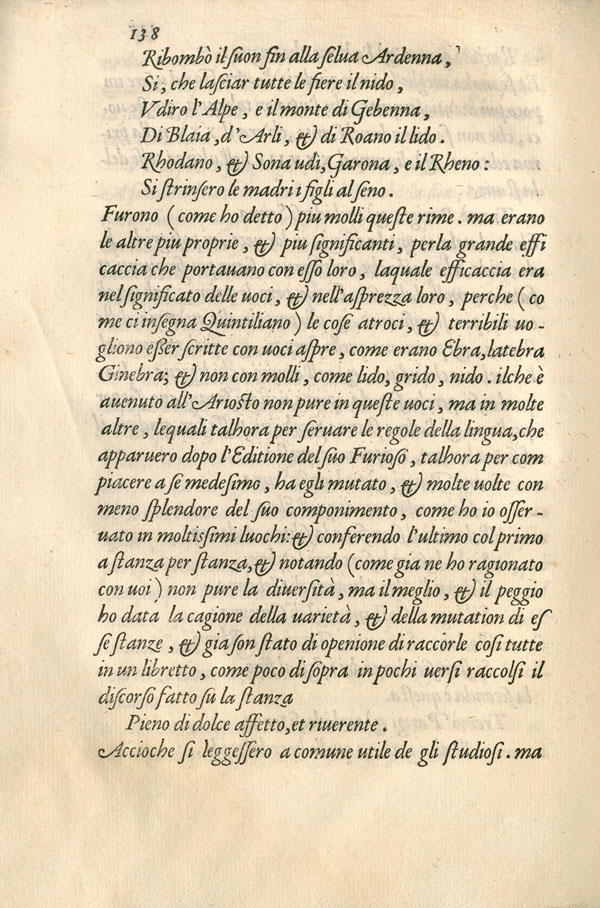 138
Ribombò il suon fin alla selua Ardenna,
Si, che lasciar tutte le fiere il nido,
Vdiro l'Alpe, e il monte di Gebenna,
Di Blaia, d'Arli, & di Roano il lido.
Rhodano, & Sona udì, Garona, e il Rheno:
Si strinsero le madri i figli al seno.
Furono (come ho detto) piu molli queste rime. ma erano
le altre piu proprie, & piu significanti, per la grande effi
caccia che portauano con esso loro, laquale efficaccia era
nel significato delle uoci, & nell'asprezza loro, perche (co
me ci insegna Quintiliano) le cose atroci, & terribili uo-
gliono esser scritte con uoci aspre, come erano Ebra, latebra
Ginebra; & non con molli, come lido, grido, nido. ilche è
auenuto all'Ariosto non pure in queste uoci, ma in molte
altre, lequali talhora per seruare le regole della lingua, che
apparuero dopo l'Editione del suo Furioso, talhora per com
piacere a se medesimo, ha egli mutato, & molte uolte con
meno splendore del suo componimento, come ho io osser-
uato in moltissimi luochi: & conferendo l'ultimo col primo
a stanza per stanza, & notando (come gia ne ho ragionato
con uoi) non pure la diuersità, ma il meglio, & il peggio
ho data la cagione della uarietà, & della mutation di es
se stanze, & gia son stato di openione di raccorle cosi tutte
in un libretto, come poco di sopra in pochi uersi raccolsi il
discorso fatto su la stanza
Pieno di dolce affetto, et riuerente.
Accioche si leggessero a comune utile de gli studiosi. ma